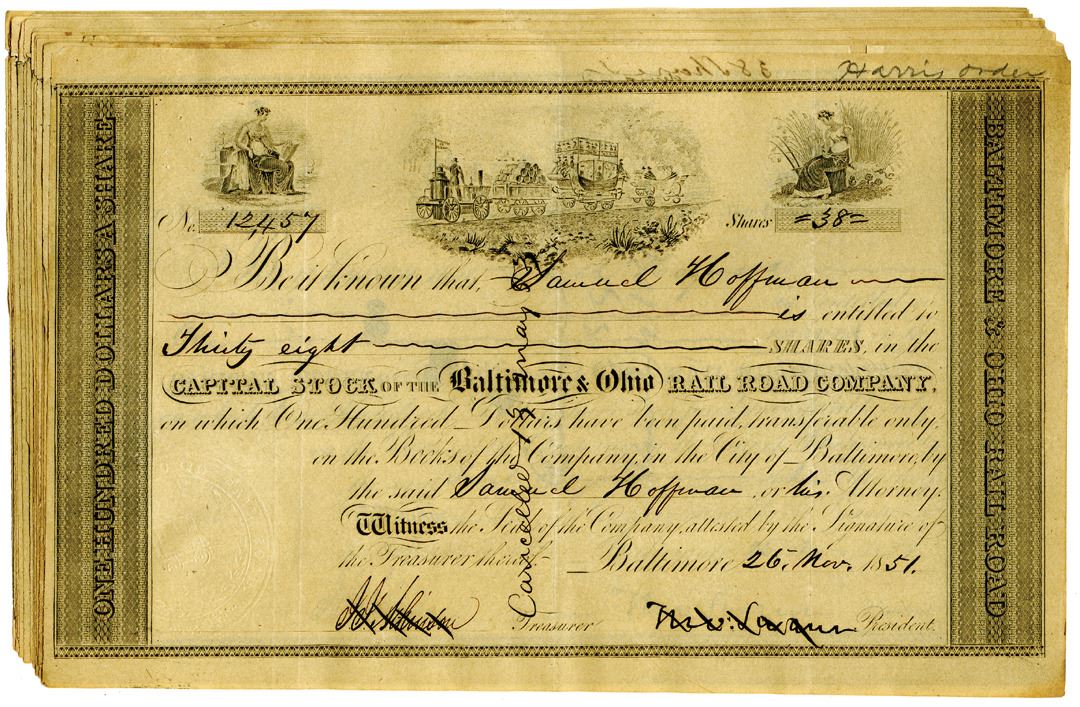 Harris order
ONE HUNDRED DOLLARS A SHARE
BALTIMORE & OHIO RAIL ROAD
No. 12,457
Shares =38=
Be it known that, Samuel Hoffman
is entitled to
Thirty eight SHARES, in the
CAPITAL STOCK OF THE Baltimore & Ohio RAIL ROAD COMPANY,
on which One Hundred Dollars have been paid, transferable only
on the Books of the Company, in the City of Baltimore, by
the said Samuel Hoffman or his Attorney.
Witness the Seal of the Company, attested by the Signature of
the Treasurer thereof. Baltimore 26. Nov. 1851.
Treasurer
President.
Cancelled 13 May 53